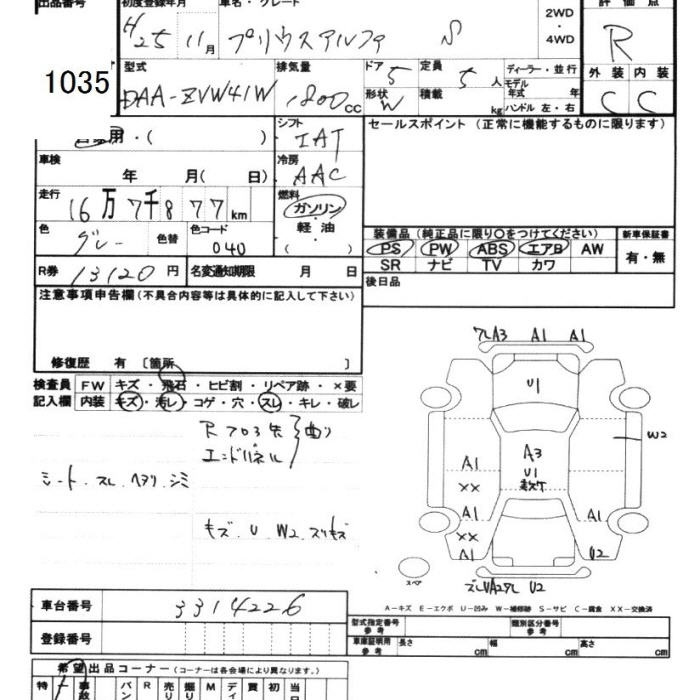 出品番号 初度登録年月 車名・グレード 評価点
H25 11月 プリウスアルファ S 2WD・4WD R
1035
型式 排気量 ドア 5 定員 5人 ディーラー・並行 外装 内装
DAA-ZVW41W 1800cc 形状 W 積載 kg モデル年式 年 ハンドル 左・右 C C
自家用・( ) シフト IAT セールスポイント (正常に機能するものに限ります)
車検 年 月( 日) 冷房 AAC
走行 16万7千877km 燃料 ガソリン・軽油・( )
色 グレー 色替 色コード 040
装備品 (純正品に限り○をつけてください) 新車保証書
PS PW ABS エアB AW 有・無
SR ナビ TV カワ
R券 13120円 名変通知期限 月 日 後日品
注意事項申告欄 (不具合内容等は具体的に記入して下さい)
修復歴 有 〔箇所 〕
検査員 FW キズ・飛石・ヒビ割・リペア跡・×要
記入欄 内装 キズ・汚レ・コゲ・穴・スレ・キレ・破レ
エンドパネル 曲り
シート.スレ.ヘタリ.シミ
キズ.U.W2.スリキズ
A3 A1 A1
U1
W2
A3
A1 U1
XX
A1 A1
XX
A1 U2
スペア
U2
A-キズ E-エクボ U-凹み W-補修跡 S-サビ C-腐食 XX-交換済
車台番号 3314226
登録番号
型式指定番号 参考 類別区分番号 参考
車庫証明用 参考 長さ cm 幅 cm 高さ cm
希望出品コーナー (コーナーは各会場により異なります。)
特 事故 バン R 売り 掘り M ディ 買 初 当日